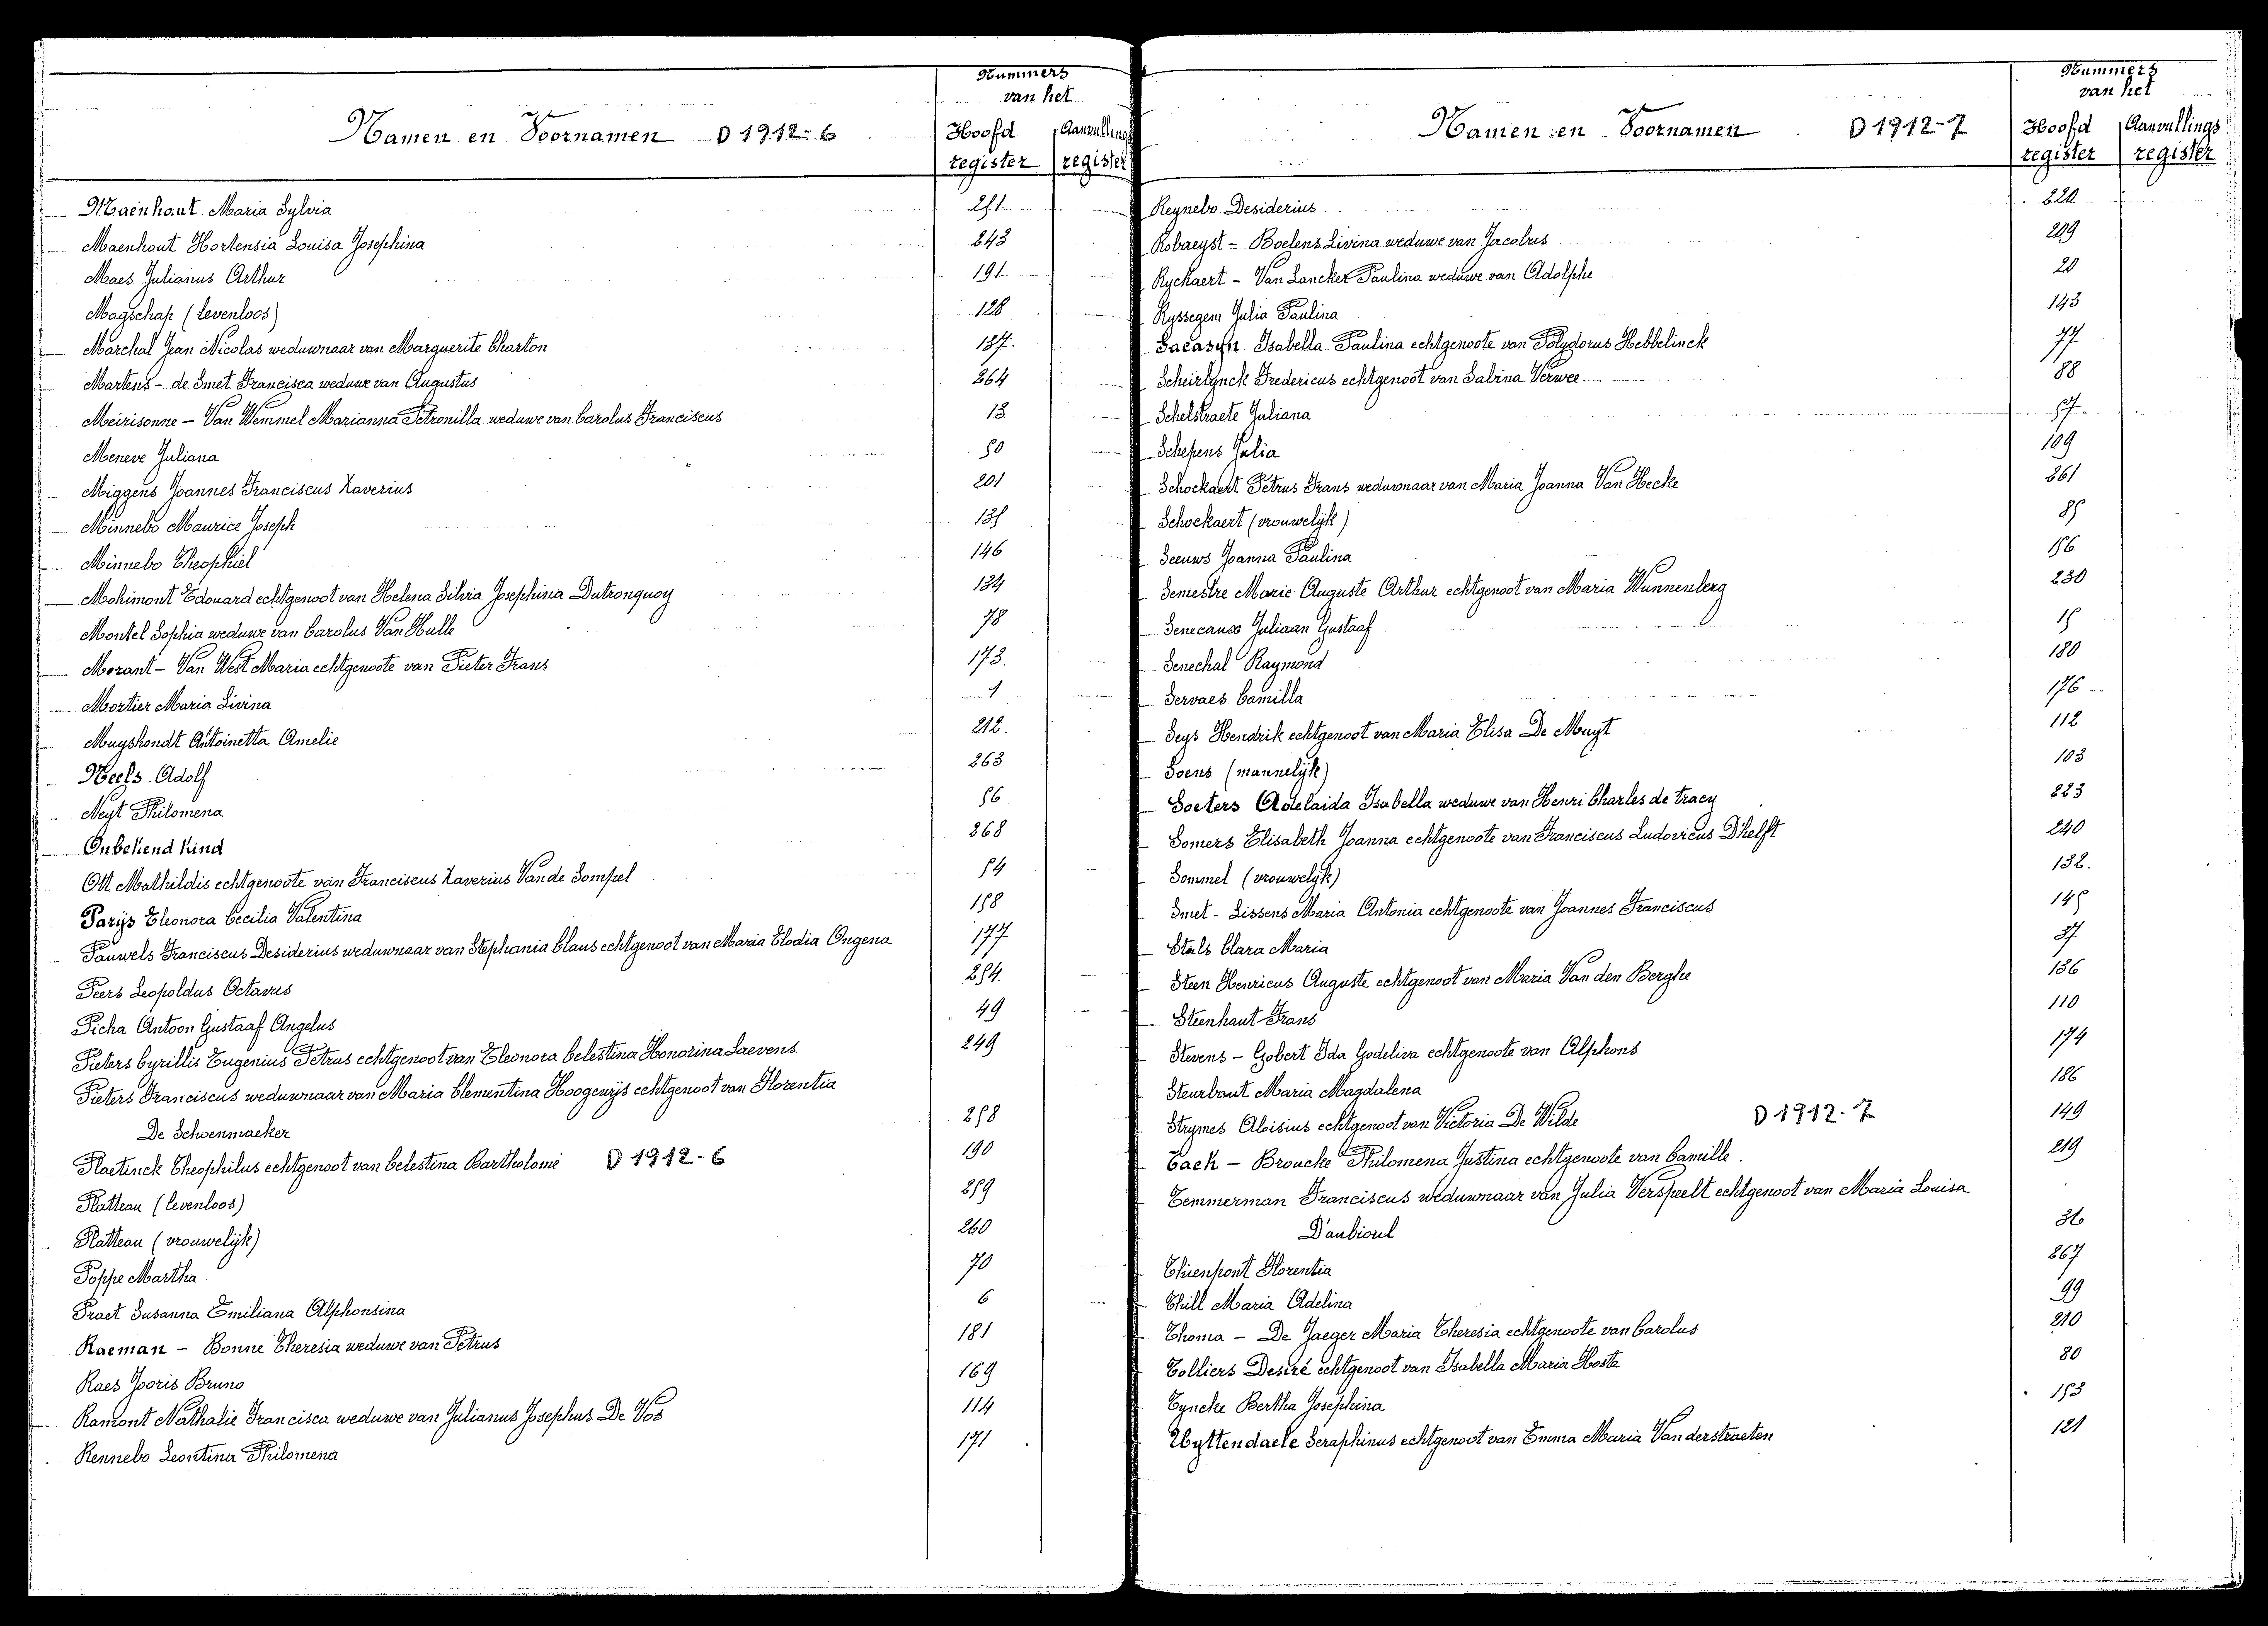 Nummers
van het
Namen en Voornamen D 1912-6
Hoofd Aanvullings
register register
Maenhout Maria Sylvia 251
Maenhout Hortensia Louisa Josephina 243
Maes Julianus Arthur 191
Magschap (levenloos) 128
Marchal Jean Nicolas weduwnaar van Marguerite Charton 137
Martens - de Smet Francisca weduwe van Augustus 264
Meirisonne - Van Wemmel Marianna Petronilla weduwe van Carolus Franciscus 13
Meneve Juliana 50
Miggens Joannes Franciscus Xaverius 201
Minnebo Maurice Joseph 135
Minnebo Theophiel 146
Mohimont Edouard echtgenoot van Helena Silvia Josephina Dutronquoy 134
Montel Sophia weduwe van Carolus Van Hulle 78
Morant - Van West Maria echtgenoote van Pieter Frans 173
Mortier Maria Livina 1
Muyshondt Antoinetta Amelie 212
Neels Adolf 263
Neyt Philomena 56
Onbekend kind 268
Ott Mathildis echtgenoote van Franciscus Xaverius Van de Sompel 54
Parijs Eleonora Cecilia Valentina 158
Pauwels Franciscus Desiderius weduwnaar van Stephania Claus echtgenoot van Maria Elodia Ongena 177
Peers Leopoldus Octavus 254
Picha Antoon Gustaaf Angelus 49
Pieters Cyrillis Eugenius Petrus echtgenoot van Eleonora Celestina Honorina Laevens 249
Pieters Franciscus weduwnaar van Maria Clementina Hoogewijs echtgenoot van Florentia
De Schoenmaeker 258
Plaetinck Theophilus echtgenoot van Celestina Bartholomé D 1912-6 190
Platteau (levenloos) 259
Platteau (vrouwelijk) 260
Poppe Martha 70
Praet Susanna Emiliana Alphonsina 6
Raeman - Bonne Theresia weduwe van Petrus 181
Raes Jooris Bruno 169
Ramont Nathalie Francisca weduwe van Julianus Josephus De Vos 114
Rennebo Leontina Philomena 171
Nummers
van het
Namen en Voornamen D 1912-7
Hoofd Aanvullings
register register
Reynebo Desiderius 220
Robaeyst - Boelens Livina weduwe van Jacobus 209
Ryckaert - Van Lancker Paulina weduwe van Adolphe 20
Ryssegem Julia Paulina 143
Sacasyn Isabella Paulina echtgenoote van Polydorus Hebbelinck 77
Scheirlynck Fredericus echtgenoot van Sabina Verwee 88
Schelstraete Juliana 57
Schepens Julia 109
Schockaert Petrus Frans weduwnaar van Maria Joanna Van Hecke 261
Schockaert (vrouwelijk) 85
Seeuws Joanna Paulina 156
Semestre Marie Auguste Arthur echtgenoot van Maria Wunnenberg 230
Senecaux Juliaan Gustaaf 15
Senechal Raymond 180
Servaes Camilla 176
Seys Hendrik echtgenoot van Maria Elisa De Muyt 112
Soens (mannelijk) 103
Soeters Adelaida Isabella weduwe van Henri Charles de Tracy 223
Somers Elisabeth Joanna echtgenoote van Franciscus Ludovicus D'helft 240
Sommel (vrouwelijk) 132
Smet - Lissens Maria Antonia echtgenoote van Joannes Franciscus 145
Stals Clara Maria 37
Steen Henricus Auguste echtgenoot van Maria Van den Berghe 136
Steenhaut Frans 110
Stevens - Gobert Ida Godeliva echtgenoote van Alphons 174
Steurbaut Maria Magdalena 186
Strymes Aloisius echtgenoot van Victoria De Wilde D 1912-7 149
Tack - Broucke Philomena Justina echtgenoote van Camille 219
Temmerman Franciscus weduwnaar van Julia Verspeelt echtgenoot van Maria Louisa
D'aubioul 36
Thienpont Florentia 267
Thill Maria Adelina 99
Thoma - De Jaeger Maria Theresia echtgenoote van Carolus 210
Tolliers Desiré echtgenoot van Isabella Maria Hoste 80
Tyncke Bertha Josephina 153
Uyttendaele Seraphinus echtgenoot van Emma Maria Vanderstraeten 121